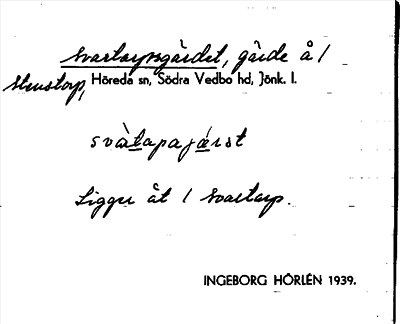 Svartarpsgärdet, gärde å /
Stenstorp, Höreda sn, Södra Vedbo hd, Jönk. l.
svàtapajæ̀rst
Ligger åt / Svartarp.
INGEBORG HÖRLÉN 1939.